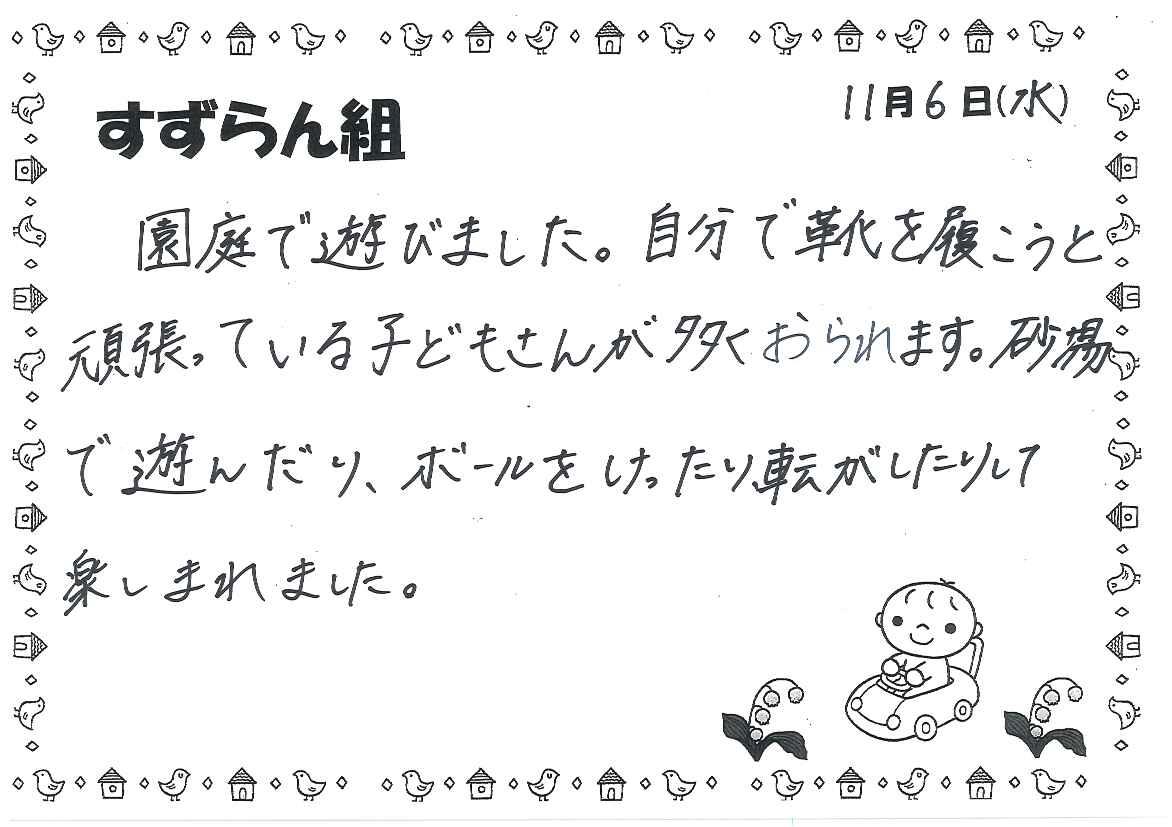 すずらん組
11月6日(水)
園庭で遊びました。自分で靴を履こうと
頑張っている子どもさんが多くおられます。砂場
で遊んだり、ボールをけったり転がしたりして
楽しまれました。